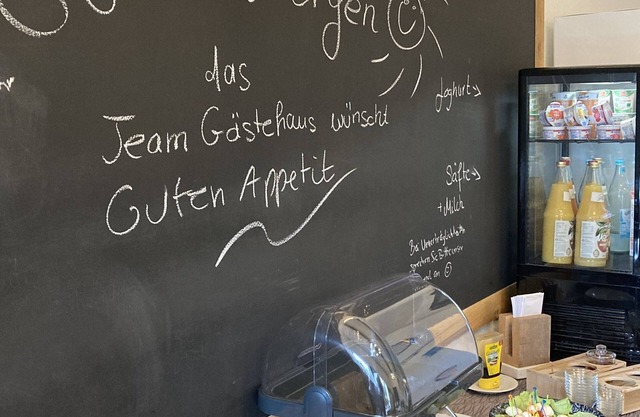 das
Team Gästehaus wünscht
Guten Appetit
Joghurt→
Säfte→
+ Milch
Bei Unverträglichkeiten
sprechen Sie
an